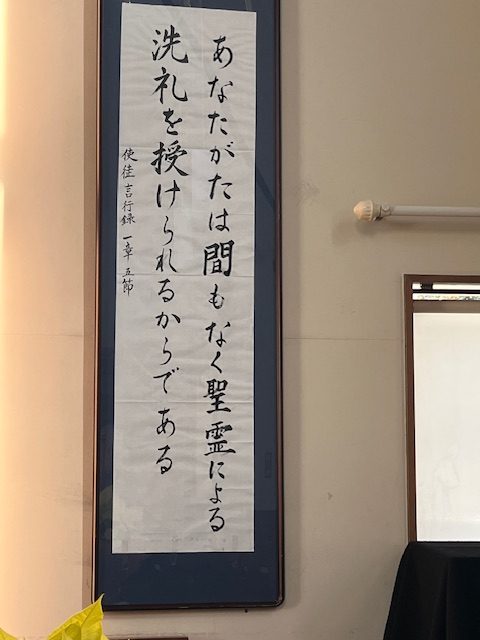 あなたがたは間もなく聖霊による
洗礼を授けられるからである
使徒言行録 一章 五節